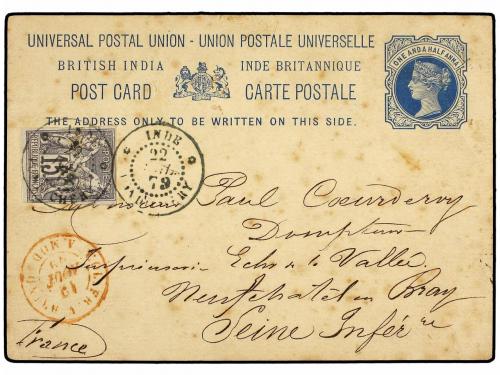 UNIVERSAL POSTAL UNION - UNION POSTALE UNIVERSELLE
BRITISH INDIA INDE BRITANNIQUE
POST CARD CARTE POSTALE
THE ADDRESS ONLY TO BE WRITTEN ON THIS SIDE.
ONE AND A HALF ANNA
INDE
22
79
15
Monsieur Paul Coeurderoy
Dompteur
Imprimerie Echo de la Vallée
Neufchatel en Bray
Seine Infér re
France